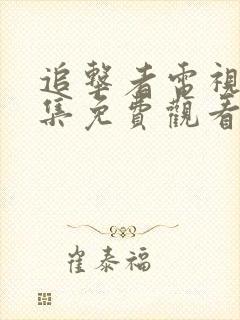 追擊者電視
集免費觀看
崔泰福